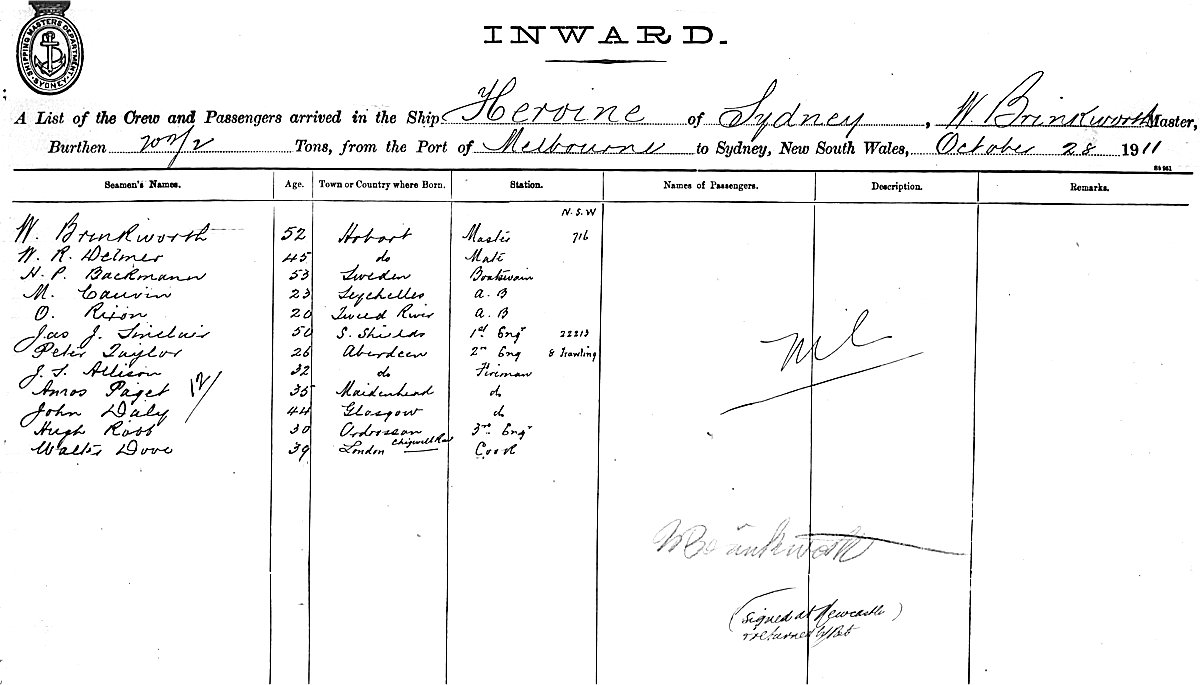 SHIPPING MASTERS DEPARTMENT
SYDNEY
INWARD.
A List of the Crew and Passengers arrived in the Ship Heroine of Sydney, W. Brinkworth Master,
Burthen Tons, from the Port of Melbourne to Sydney, New South Wales, October 28 1911
Seamen's Names. Age. Town or Country where Born. Station. Names of Passengers. Description. Remarks.
N.S.W
W. Brinkworth 52 Hobart Master 716
W. R. Delmer 45 do Mate
H. P. Backmann 53 Sweden Boatswain
M. Cauvin 23 Seychelles A.B
O. Rixon 20 Tweed River A.B
Jas J. Sinclair 50 S. Shields 1st Engr 22213
Peter Taylor 26 Aberdeen 2nd Engr
J. S. Allison 32 do Fireman
Amos Paget 35 Maidenhead do
12/
John Daly 44 Glasgow do
Hugh Robb 30 Ardrossan 3rd Engr
Walter Dove 39 London Cook
Nil
W Brinkworth
(signed at Newcastle)
returned by